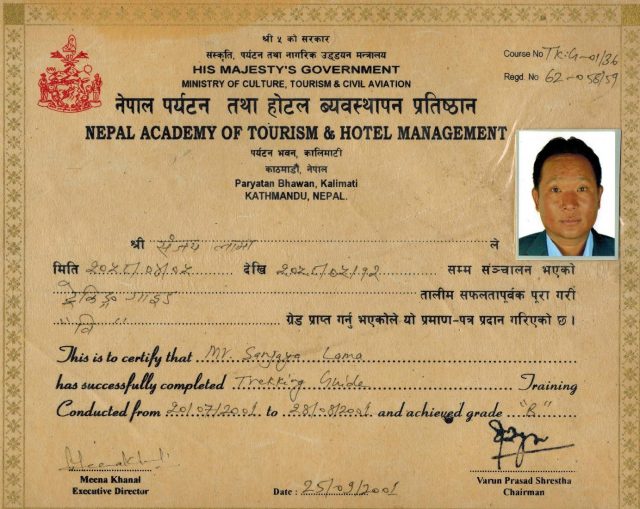 श्री ५ को सरकार
संस्कृति, पर्यटन तथा नागरिक उड्डयन मन्त्रालय
HIS MAJESTY'S GOVERNMENT
MINISTRY OF CULTURE, TOURISM & CIVIL AVIATION
Course No TK:G-01/36
Regd No 62-058/59
नेपाल पर्यटन तथा होटल ब्यवस्थापन प्रतिष्ठान
NEPAL ACADEMY OF TOURISM & HOTEL MANAGEMENT
पर्यटन भवन, कालिमाटी
काठमाडौं, नेपाल
Paryatan Bhawan, Kalimati
KATHMANDU, NEPAL.
श्री संजय लामा ले
मिति २०५८/०४/०५ देखि २०५८/०५/१२ सम्म सञ्चालन भएको
ट्रेकिङ्ग गाइड तालीम सफलतापूर्वक पूरा गरी
"बि" ग्रेड प्राप्त गर्नु भएकोले यो प्रमाण-पत्र प्रदान गरिएको छ।
This is to certify that Mr. Sanjaya Lama
has successfully completed Trekking Guide Training
Conducted from 20/07/2001 to 28/08/2001 and achieved grade "B"
Meena Khanal
Executive Director
Date : 25/09/2001
Varun Prasad Shrestha
Chairman